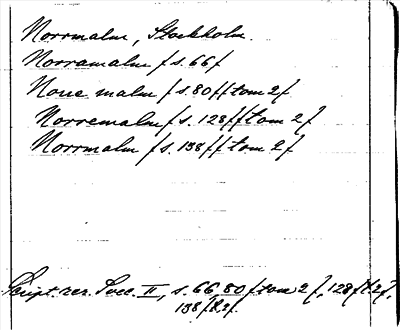 Norrmalm, Stockholm.
Norramalm /s. 66/
Norre malm /s. 80 ff tom 2/.
Norremalm /s. 128 ff tom 2/.
Norrmalm /s. 138 ff tom 2/.
Script. rer. Svec. II, s. 66, 80 f tom 2/, 128 f t. 2/,
138 f t. 2/.